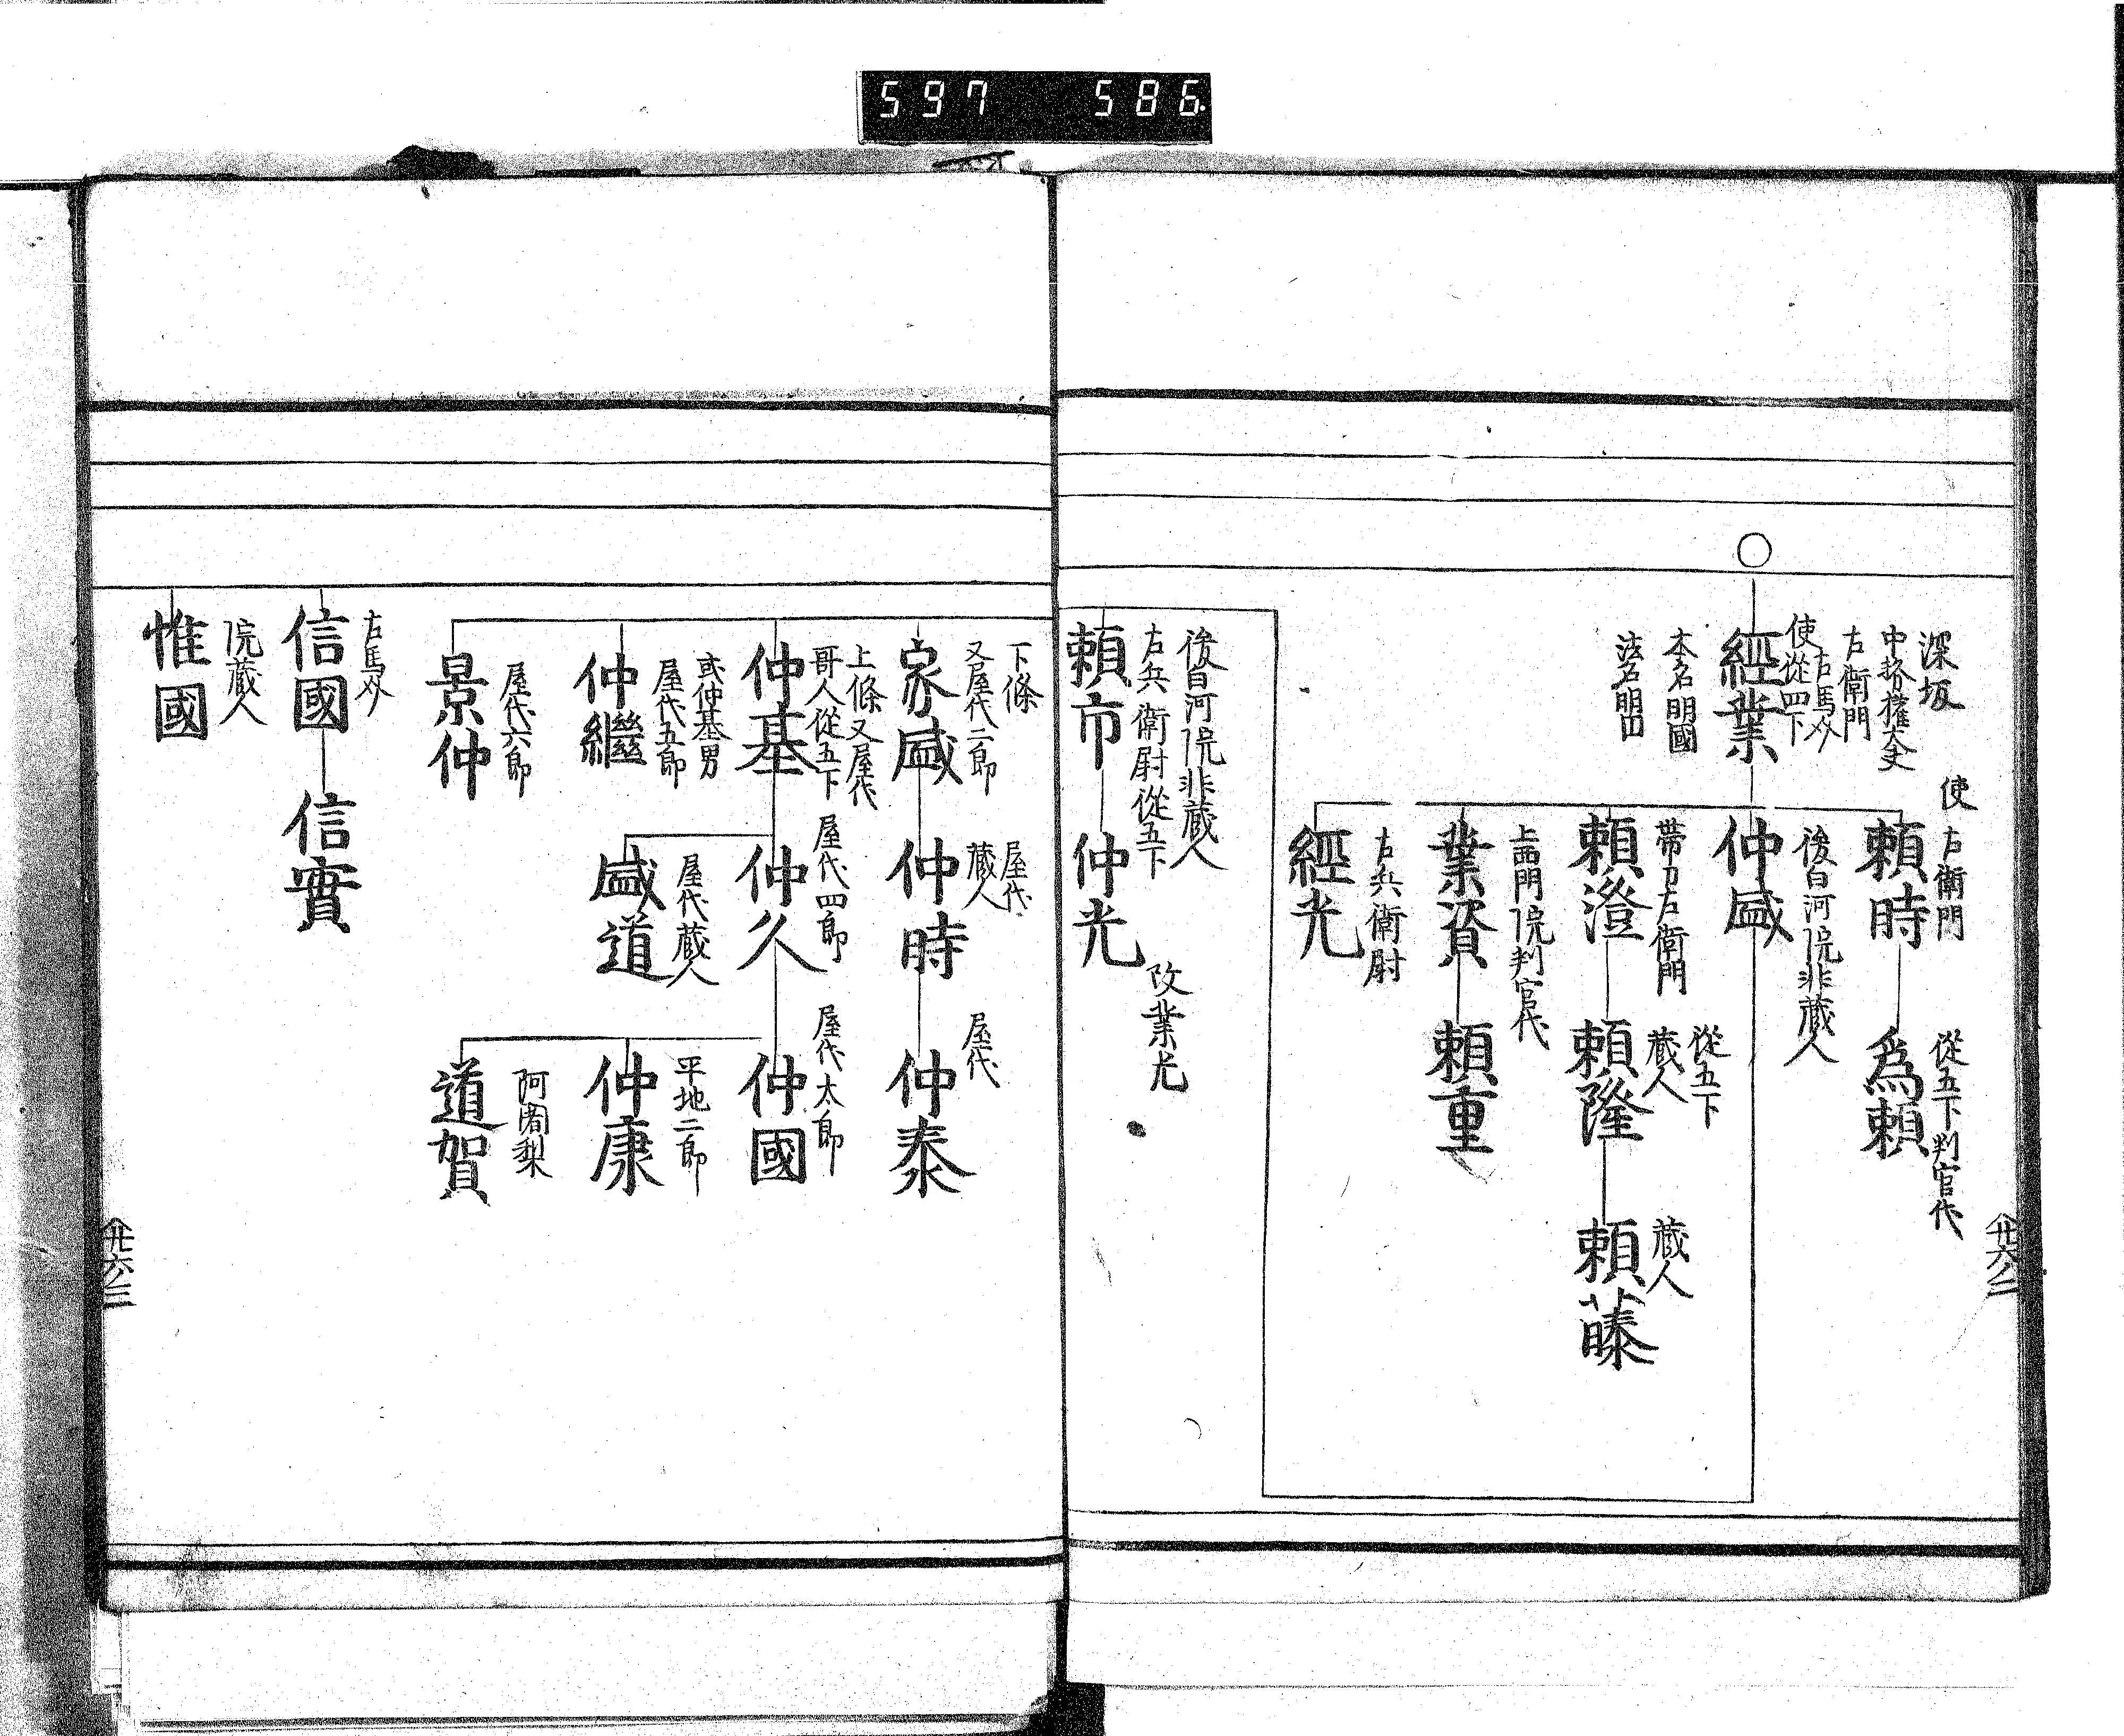 597 586
深坂
中務權大夫
左衛門
使 右馬介
從四下
經業
本名明國
法名明田
使 左衛門
頼時
從五下判官代
為頼
後白河院非蔵人
仲盛
帯刀左衛門
頼澄
從五下
蔵人
頼隆
蔵人
頼藤
上西門院判官代
業資
頼重
左兵衛尉
經光
後白河院非蔵人
左兵衛尉從五下
頼市
改業光
仲光
廿六ノ二
下條
又屋代二郎
家盛
屋代
蔵人
仲時
屋代
仲泰
上條又屋代
哥人從五下
仲基
屋代四郎
仲久
屋代太郎
仲國
或仲基男
屋代五郎
仲繼
屋代蔵人
盛道
平地二郎
仲康
屋代六郎
景仲
阿闍梨
道賀
右馬介
信國
信實
院蔵人
惟國
廿六ノ三